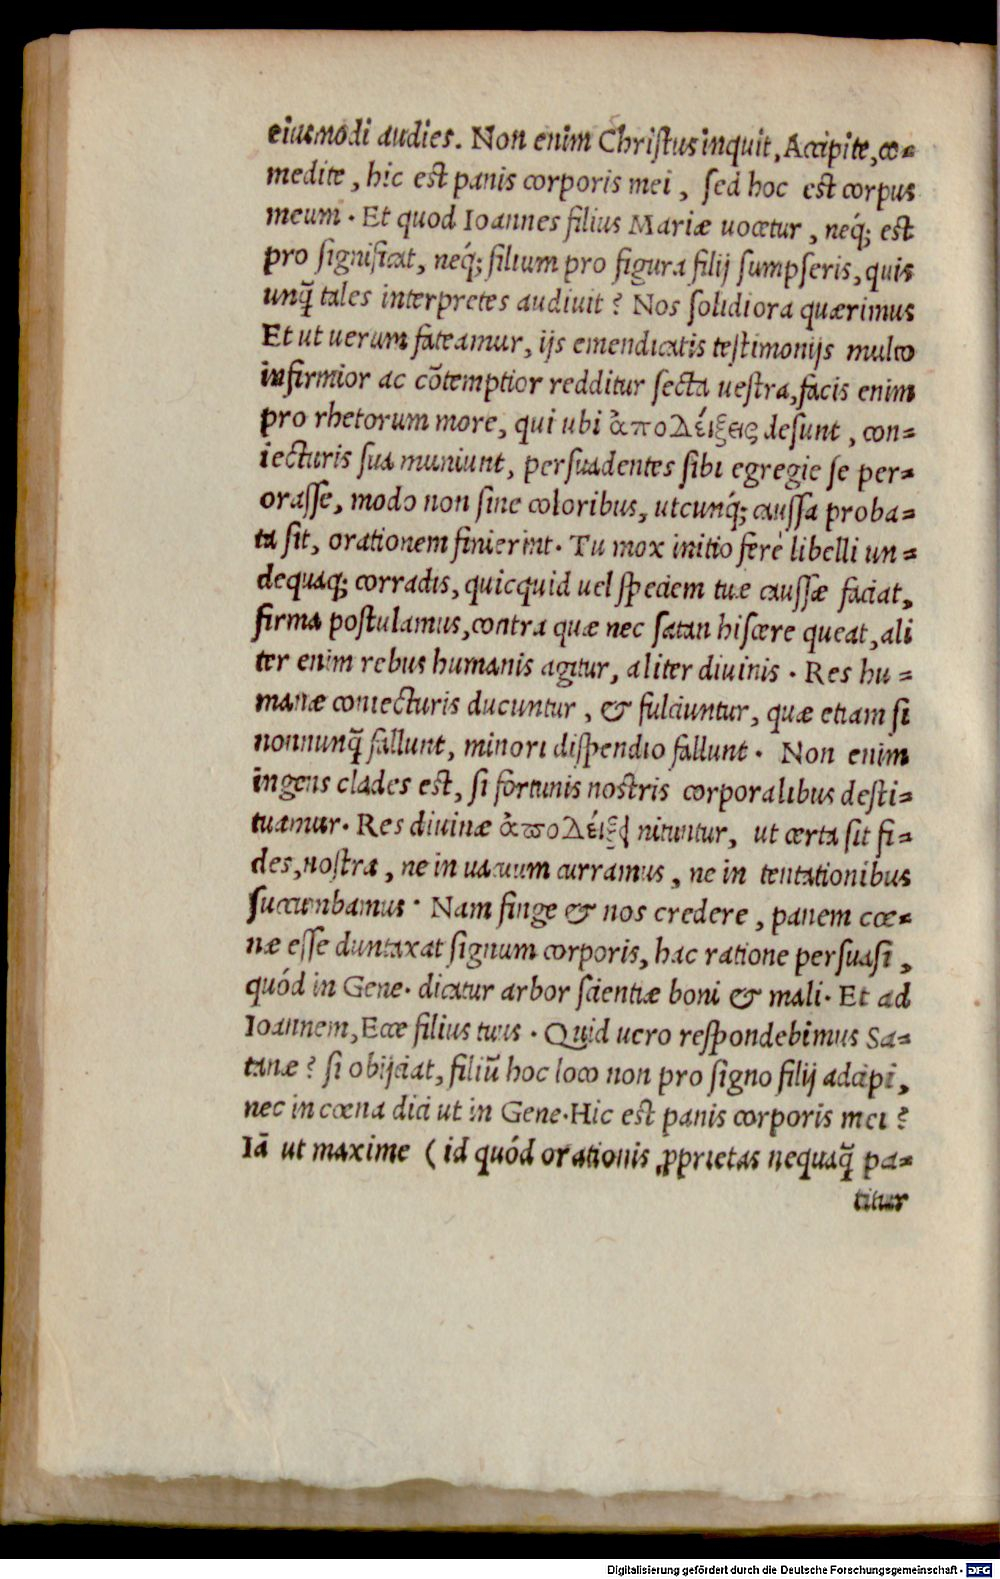 eiusmodi audies. Non enim Christus inquit, Accipite, co=
medite, hic est panis corporis mei, sed hoc est corpus
meum. Et quod Ioannes filius Mariæ uocetur, neq́; est
pro significat, neq́; filium pro figura filij sumpseris, quis
unq̃ tales interpretes audiuit? Nos solidiora quærimus
Et ut uerum fateamur, ijs emendicatis testimonijs multo
infirmior ac cõtemptior redditur secta uestra, facis enim
pro rhetorum more, qui ubi ἀποδείξεις desunt, con=
iecturis sua muniunt, persuadentes sibi egregie se per=
orasse, modo non sine coloribus, utcunq́; caussa proba=
ta sit, orationem finierint. Tu mox initio ferè libelli un=
dequaq; corradis, quicquid uel speciem tuæ caussæ faciat,
firma postulamus, contra quæ nec satan hiscere queat, ali
ter enim rebus humanis agitur, aliter diuinis. Res hu=
manæ coniecturis ducuntur, & fulciuntur, quæ etiam si
nonnunq̃ fallunt, minori dispendio fallunt. Non enim
ingens clades est, si fortunis nostris corporalibus desti=
tuamur. Res diuinæ ἀποδείξει nituntur, ut certa sit fi=
des, nostra, ne in uacuum curramus, ne in tentationibus
succumbamus. Nam finge & nos credere, panem cœ=
næ esse duntaxat signum corporis, hac ratione persuasi,
quód in Gene. dicatur arbor scientiæ boni & mali. Et ad
Ioannem, Ecce filius tuus. Quid uero respondebimus Sa=
tanæ? si obijciat, filiũ hoc loco non pro signo filij adcipi,
nec in cœna dici ut in Gene. Hic est panis corporis mei?
Iã ut maxime (id quód orationis ꝓprietas nequaq̃ pa=
titur
Digitalisierung gefördert durch die Deutsche Forschungsgemeinschaft - DFG